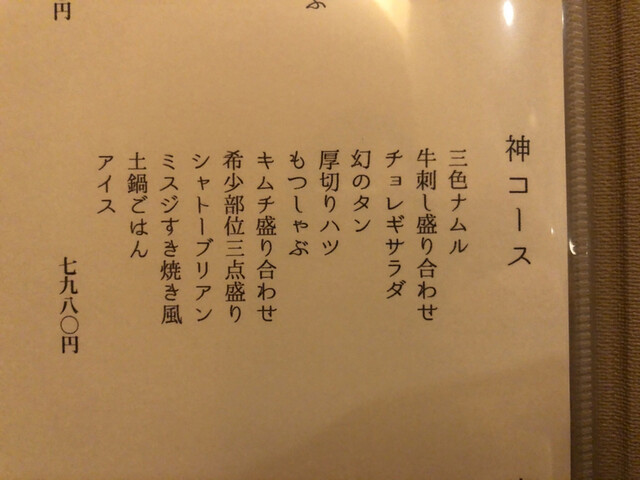 神コース
三色ナムル
牛刺し盛り合わせ
チョレギサラダ
幻のタン
厚切りハツ
もつしゃぶ
キムチ盛り合わせ
希少部位三点盛り
シャトーブリアン
ミスジすき焼き風
土鍋ごはん
アイス
七九八〇円
ぶ
円